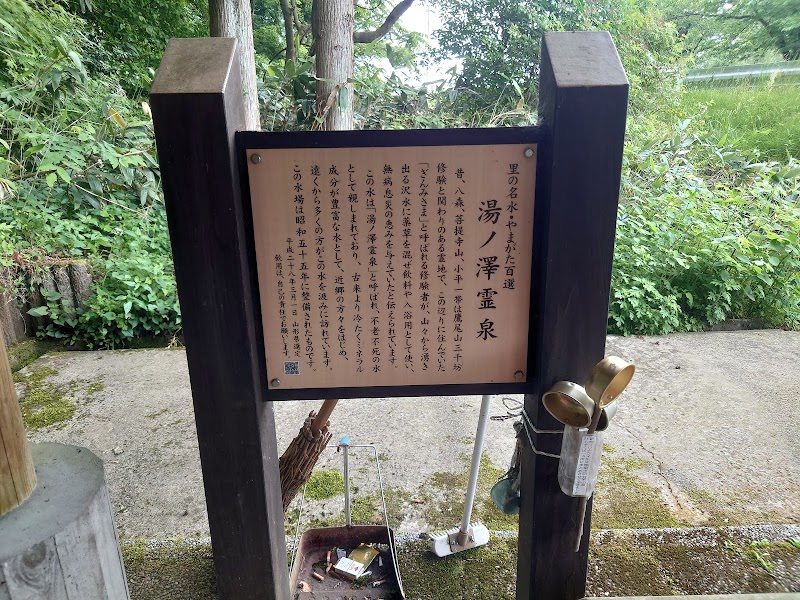 里の名水・やまがた百選
湯ノ澤霊泉
昔、八森、菩提寺山、小平一帯は鷹尾山三千坊
修験と関わりのある霊地で、この辺りに住んでいた
「ざんみさま」と呼ばれる修験者が、山々から湧き
出る沢水に薬草を混ぜ飲料や入浴用として使い、
無病息災の恵みを与えていたと伝えられています。
この水は「湯ノ澤霊泉」と呼ばれ、不老不死の水
として親しまれており、古来より冷たくミネラル
成分が豊富な水として、近郷の方々をはじめ、
遠くから多くの方がこの水を汲みに訪れています。
この水場は昭和五十五年に整備されたものです。
平成二十八年三月一日 山形県選定
飲用は、自己の責任でお願いします。